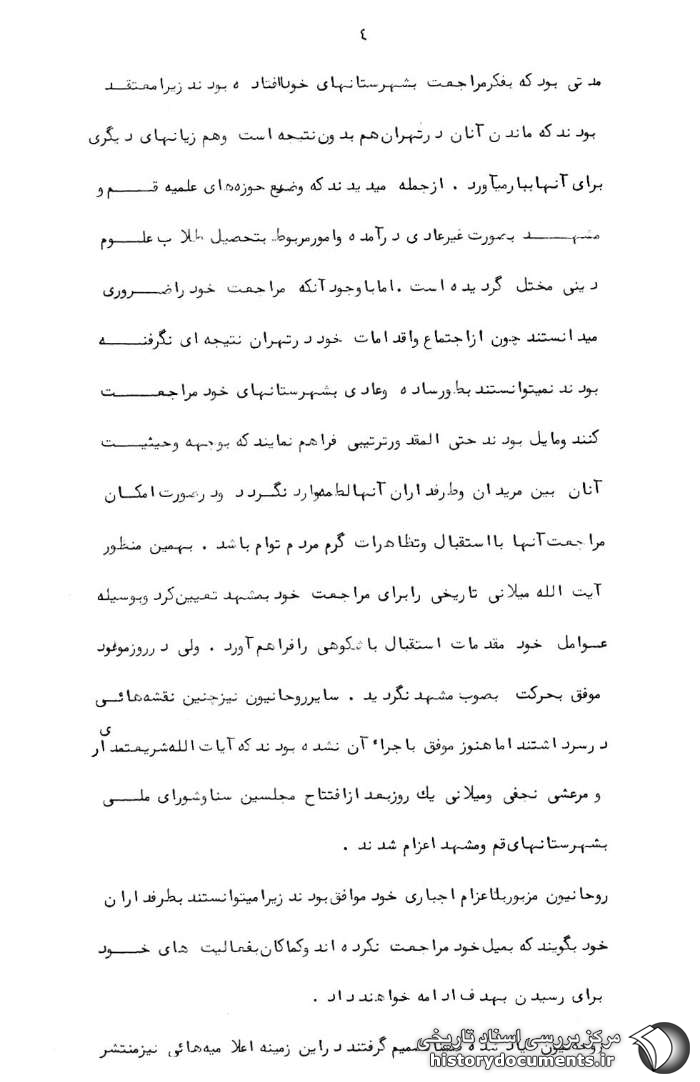 ٤
مدتی بود که بفکرمراجعت بشهرستانهای خودافتاده بودند زیرامعتقد
بودند که ماندن آنان درتهران هم بدون نتیجه است وهم زیانهای دیگری
برای آنهاببارمیآورد . ازجمله میدیدند که وضع حوزه‌های علمیه قم و
مشهد بصورت غیرعادی درآمده وامورمربوط بتحصیل طلاب علوم
دینی مختل گردیده است . اما باوجودآنکه مراجعت خود راضروری
میدانستند چون ازاجتماع واقدامات خود درتهران نتیجه ای نگرفته
بودند نمیتوانستند بطورساده وعادی بشهرستانهای خود مراجعت
کنند ومایل بودند حتی المقدورترتیبی فراهم نمایند که بوجهه وحیثیت
آنان بین مریدان وطرفداران آنهالطمه‌وارد نگردد ودرصورت امکان
مراجعت آنها بااستقبال وتظاهرات گرم مردم توام باشد . بهمین منظور
آیت الله میلانی تاریخی رابرای مراجعت خود بمشهد تعیین کرد وبوسیله
عوامل خود مقدمات استقبال باشکوهی رافراهم آورد . ولی درروزموعود
موفق بحرکت بصوب مشهد نگردید . سایرروحانیون نیزچنین نقشه‌هائی
درسرداشتند اماهنوز موفق باجراء آن نشده بودند که آیات الله‌شریعتمداری
و مرعشی نجفی ومیلانی یك روزبعد ازافتتاح مجلسین سناوشورای ملی
بشهرستانهای قم ومشهد اعزام شدند .
روحانیون مزبوربااعزام اجباری خود موافق بودند زیرامیتوانستند بطرفداران
خود بگویند که بمیل خود مراجعت نکرده اند وکماکان بفعالیت های خود
برای رسیدن بهدف ادامه خواهندداد .
تصمیم گرفتند دراین زمینه اعلامیه‌هائی نیزمنتشر
مرکز بررسی اسناد تاریخی
historydocuments.ir